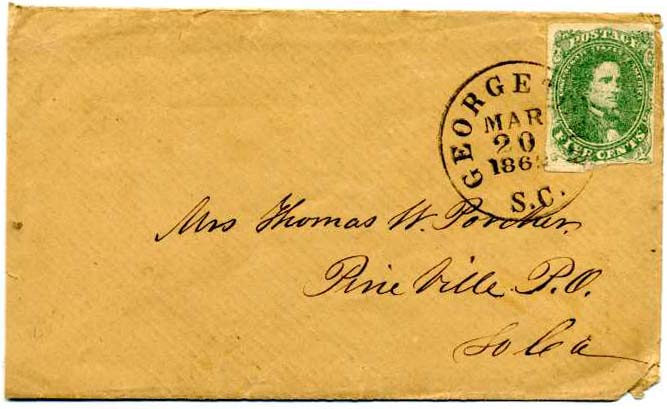 POSTAGE
FIVE CENTS
GEORGET
MAR
20
186
S.C.
Mrs Thomas W. Porcher,
Pine Ville P.O.
So Ca